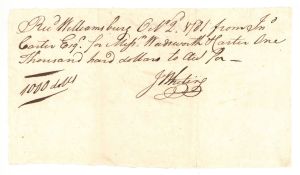 Recd Williamsburg Oct 2. 1781 from Jno
Carter Esqr. for Messrs Wadsworth & Carter One
Thousand hard dollars to acct for —
1000 dolls